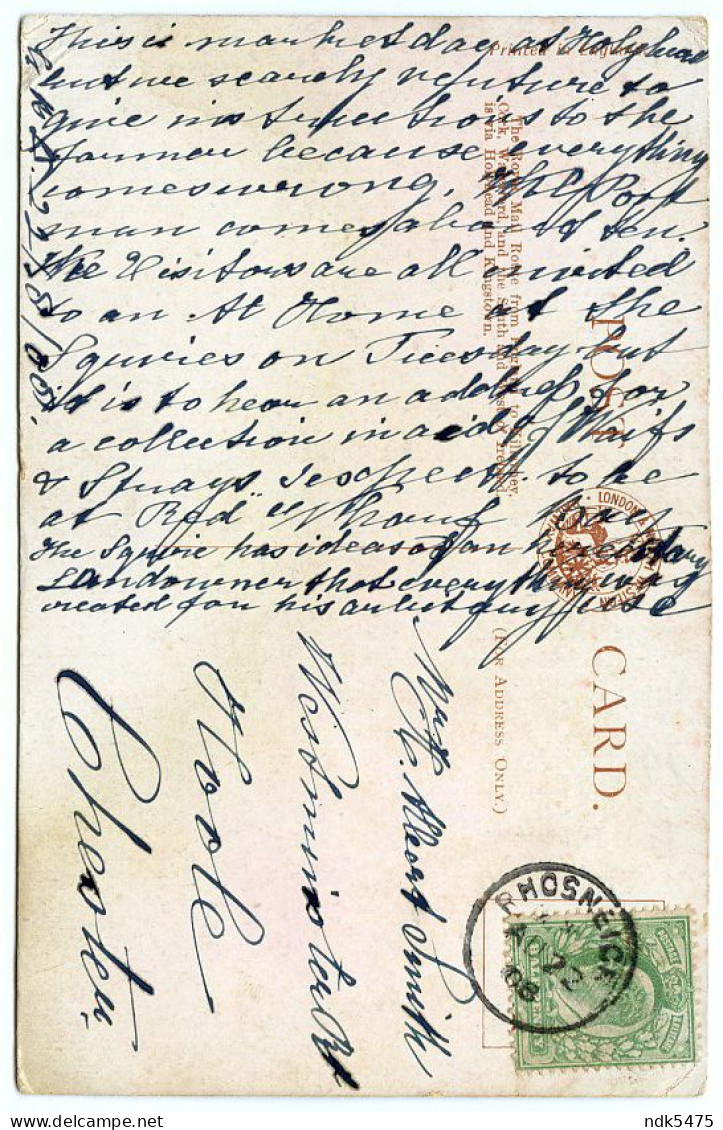 This is market day at Holyhead
but we scarcely venture to
give instructions to the
former because everything
comes wrong. The Post
man comes about ten.
The Visitors are all invited
to an At Home at the
Squires on Tuesday but
it is to hear an address for
a collection in aid of Waifs
& Strays I expect to be
at Red Wharf Bay
The Squire has ideas of an hereditary
Landowner that everything was
created for his
22/8/08
Printed in England
The Royal Mail Route from England to Killarney,
Cork, Waterford, and the South and West of Ireland
is via Holyhead and Kingstown.
POST CARD.
(FOR ADDRESS ONLY.)
LONDON &
Albert Smith
Westminster Rd
Hoole
Chester.
RHOSNEIGR
AU 22
08
ndk5475